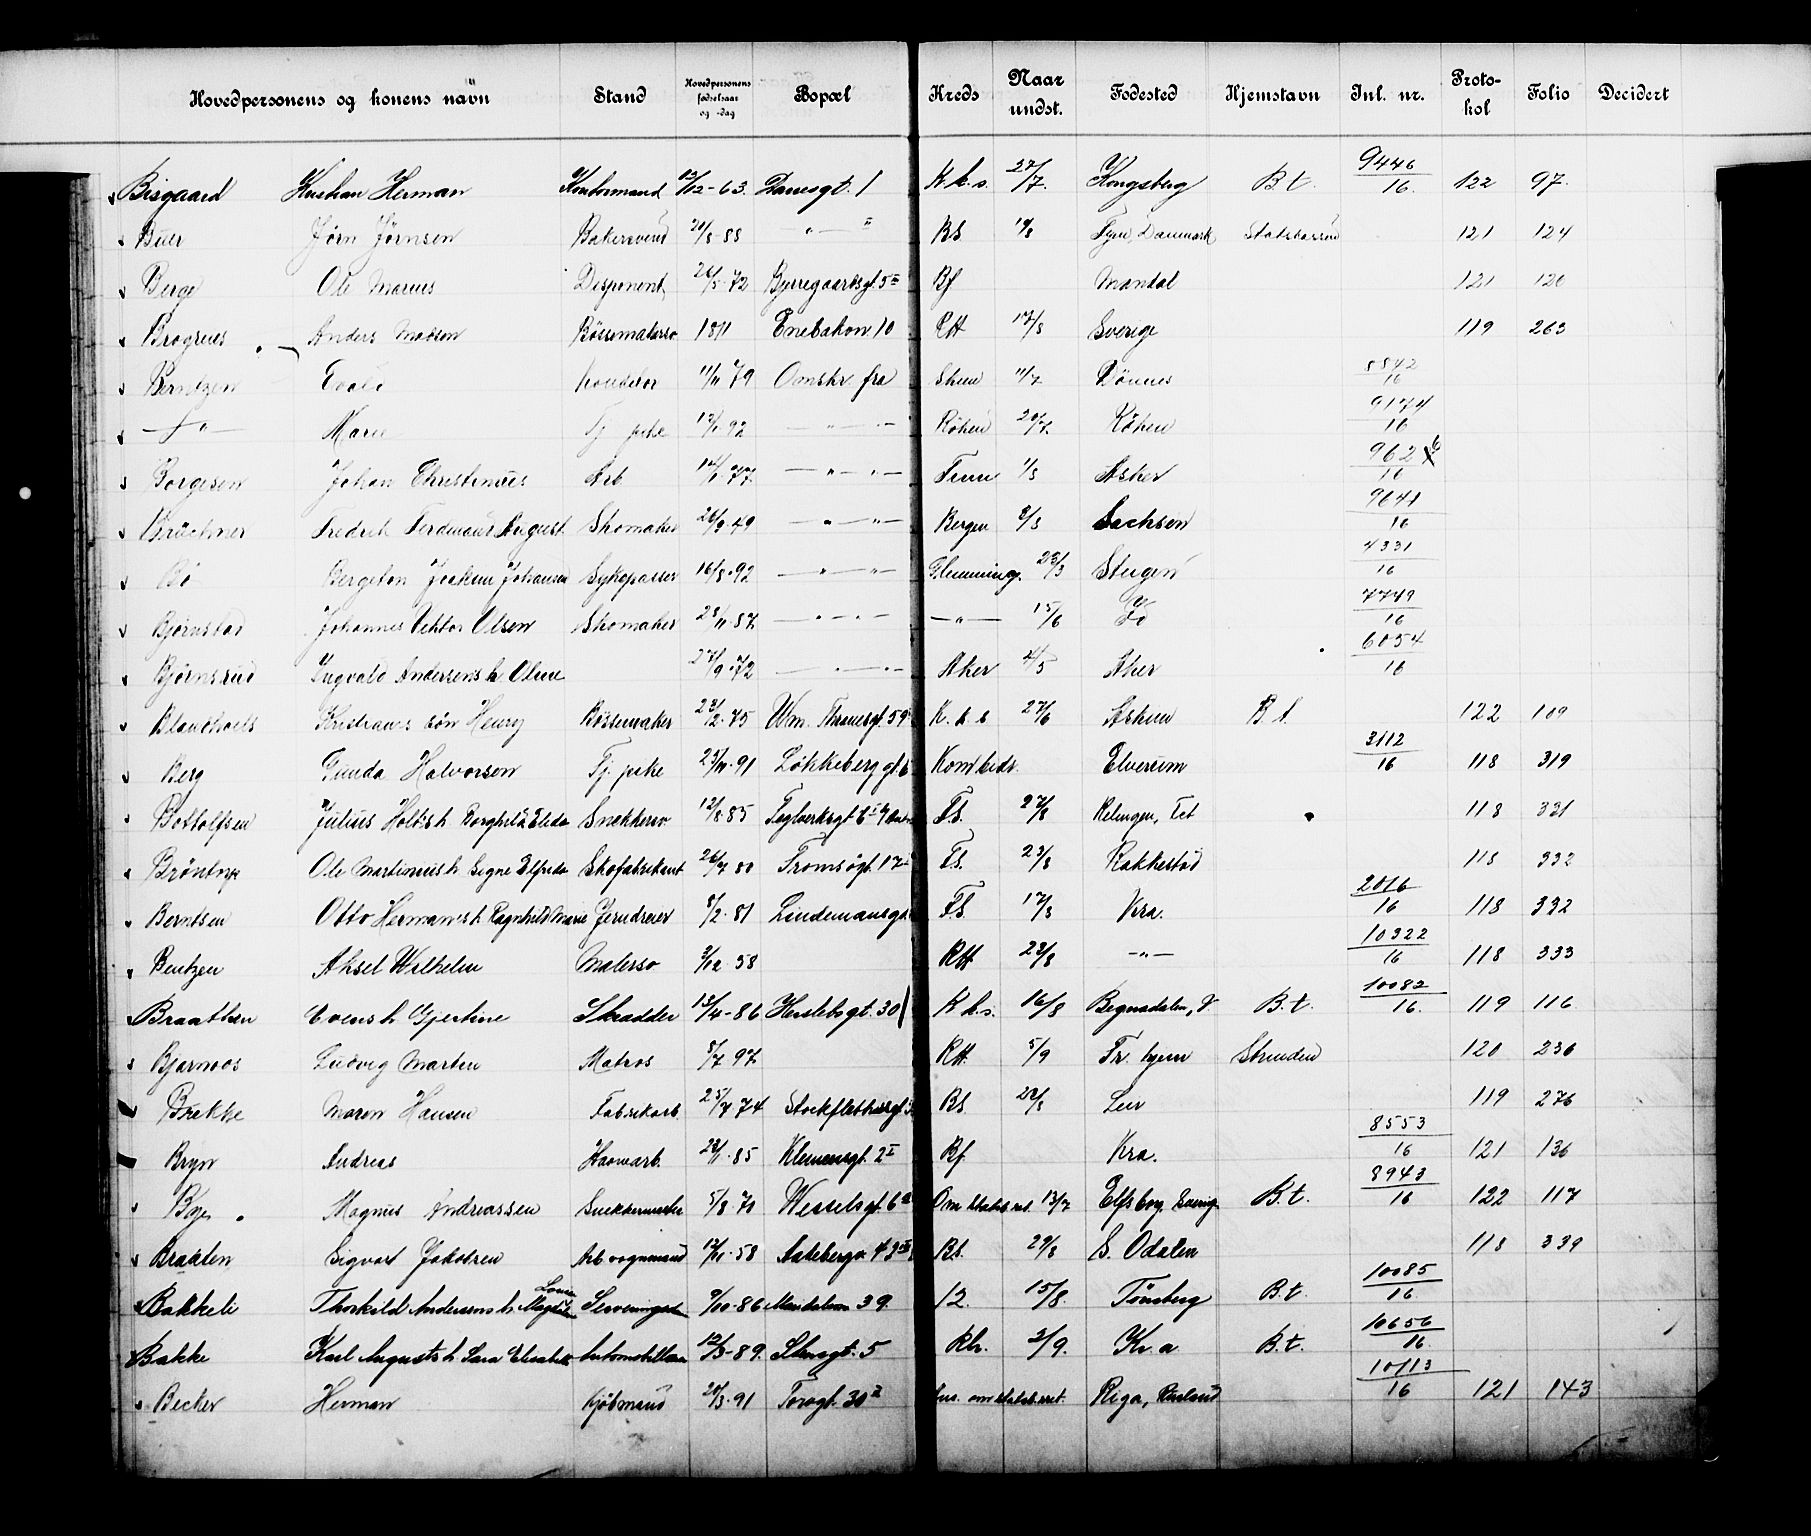 Hovedpersonens og konens navn Stand Hovedpersonens fødselsaar og -dag Bopæl Kreds Naar undst. Fødested Hjemstavn Inl. nr. Protokol Folio Decidert
Bisgaard Kristian Herman Kontormand 12/12-63. Daasgt. 1 K.k.s. 27/7. Kongsberg B.t. 9446/16. 122 97.
Buer Jörn Jörnsen Bakersvend 20/8-88 " — " BS. 19/8 Fyen, Danmark Statskassen 121 124
Berge Ole Marius Disponent 26/5-72 Bjerregaardsgt. 5 II Bf Mandal 121 120
Brogrens Anders Madsen Bössemakersv. 1871 Enebakvn 10 RH 17/8 Sverige 119 263
Berntzen Evald Konditor 11/11 79 Omstr. fra Skien 11/7 Dönnes 8842/16
— " — Marie Tj. pike 12/1-92 — " — Röken 20/7. Röken 9174/16
Borgesen Johan Christinus Arb 14/1-77. — " — " — 1/8 Asker 9626/16
Brüchner Fredrik Ferdinand August Skomaker 26/9-49 — " — " — Bergen 2/8 Sachsen 9641/16
Bö Bergeton Joakim Johansen Sykepasser 16/8-92 — " — " — Glemming. 23/3 Steigen 4331/16
Björnstad Johannes Viktor Olsen Skomaker 28/11-87. — " — " — — " — 15/6 7749/16
Björnsrud Ingvald Andersens h. Oline 27/9-72 — " — " — Aker 2/5 Aker 6054/16
Kristians sön Henry Bössemaker 23/2-75 Wm. Thranesgt. 59 K.k.s 27/6 Askim B.t. 122 109
Berg Gunda Halvorsen Tj. pike 25/11-91 Lökkeberggt. 6 Kom beds. Elverum 3112/16 118 319
Bottolfsen Julius Holdts h. Borghild Elida Snekkersv. 12/8-85 Teglverksgt. F.S. 27/8 Relingen, Fet 118 321
Bröntnye Ole Martinius h. Signe Elfrida Skofabrikant 26/7 80 Tromsögt. 17 F.S. 23/8 Rakkestad 118 332
Berntsen Otto Hermans h. Ragnhild Marie Jerndreier 8/2-81 Lindemansgt. F.S. 17/8 Kra. 2016/16 118 332
Bentzen Aksel Wilhelm Malersv 3/12 58 RH 23/8 — " — 10322/16 118 333
Braathen Evens h. Gjertine Skrædder 13/4-86 Herslebsgt. 30 K.k.s. 16/8 Begnadalen, V. B.t. 10082/16. 119 116
Bjarnoos Ludvig Martin Matros 8/7 97. RH. 5/9 Tr. hjem Strinden 120 236
Brække Maren Hansen Fabrikarb. 25/7 74 Stockflethsgt. BS. 22/8 Leir 119 276
Bryn Andreas Havnearb. 23/1-85 Klemensgt. 2 I Bf. Kra. 8553/16 121 136
Bye Magnus Andreassen Snekkermester 5/8-70 Wesselsgt. 6 Om statsb.ret. 13/7 Elfsborg, Sverig. B.t. 8943/16 122 117
Braaten Sigvart Jakobsen Arb vognmand 12/11-58 Aakebergv. 43 BS. 29/8 S. Odalen 118 339
Bakkeli Thorkild Andersens h. Magda Lovise Serveringsb. 9/10-86 Maridalsvn 39. 12. 15/8. Tönsberg B.t. 10085/16
Bakke Karl Augusts h. Sara Elisabeth Automobil 12/3-89. Stensgt. 5 Kbr. 2/9. Kr.a B.t. 10656/16.
Becker Herman Kjöbmand 20/3-91 Torvgt. 30 II om statsb.ret. Riga, Rusland 10113/16 121 143